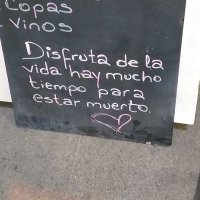 Copas
Vinos
Disfruta de la
vida hay mucho
tiempo para
estar muerto.